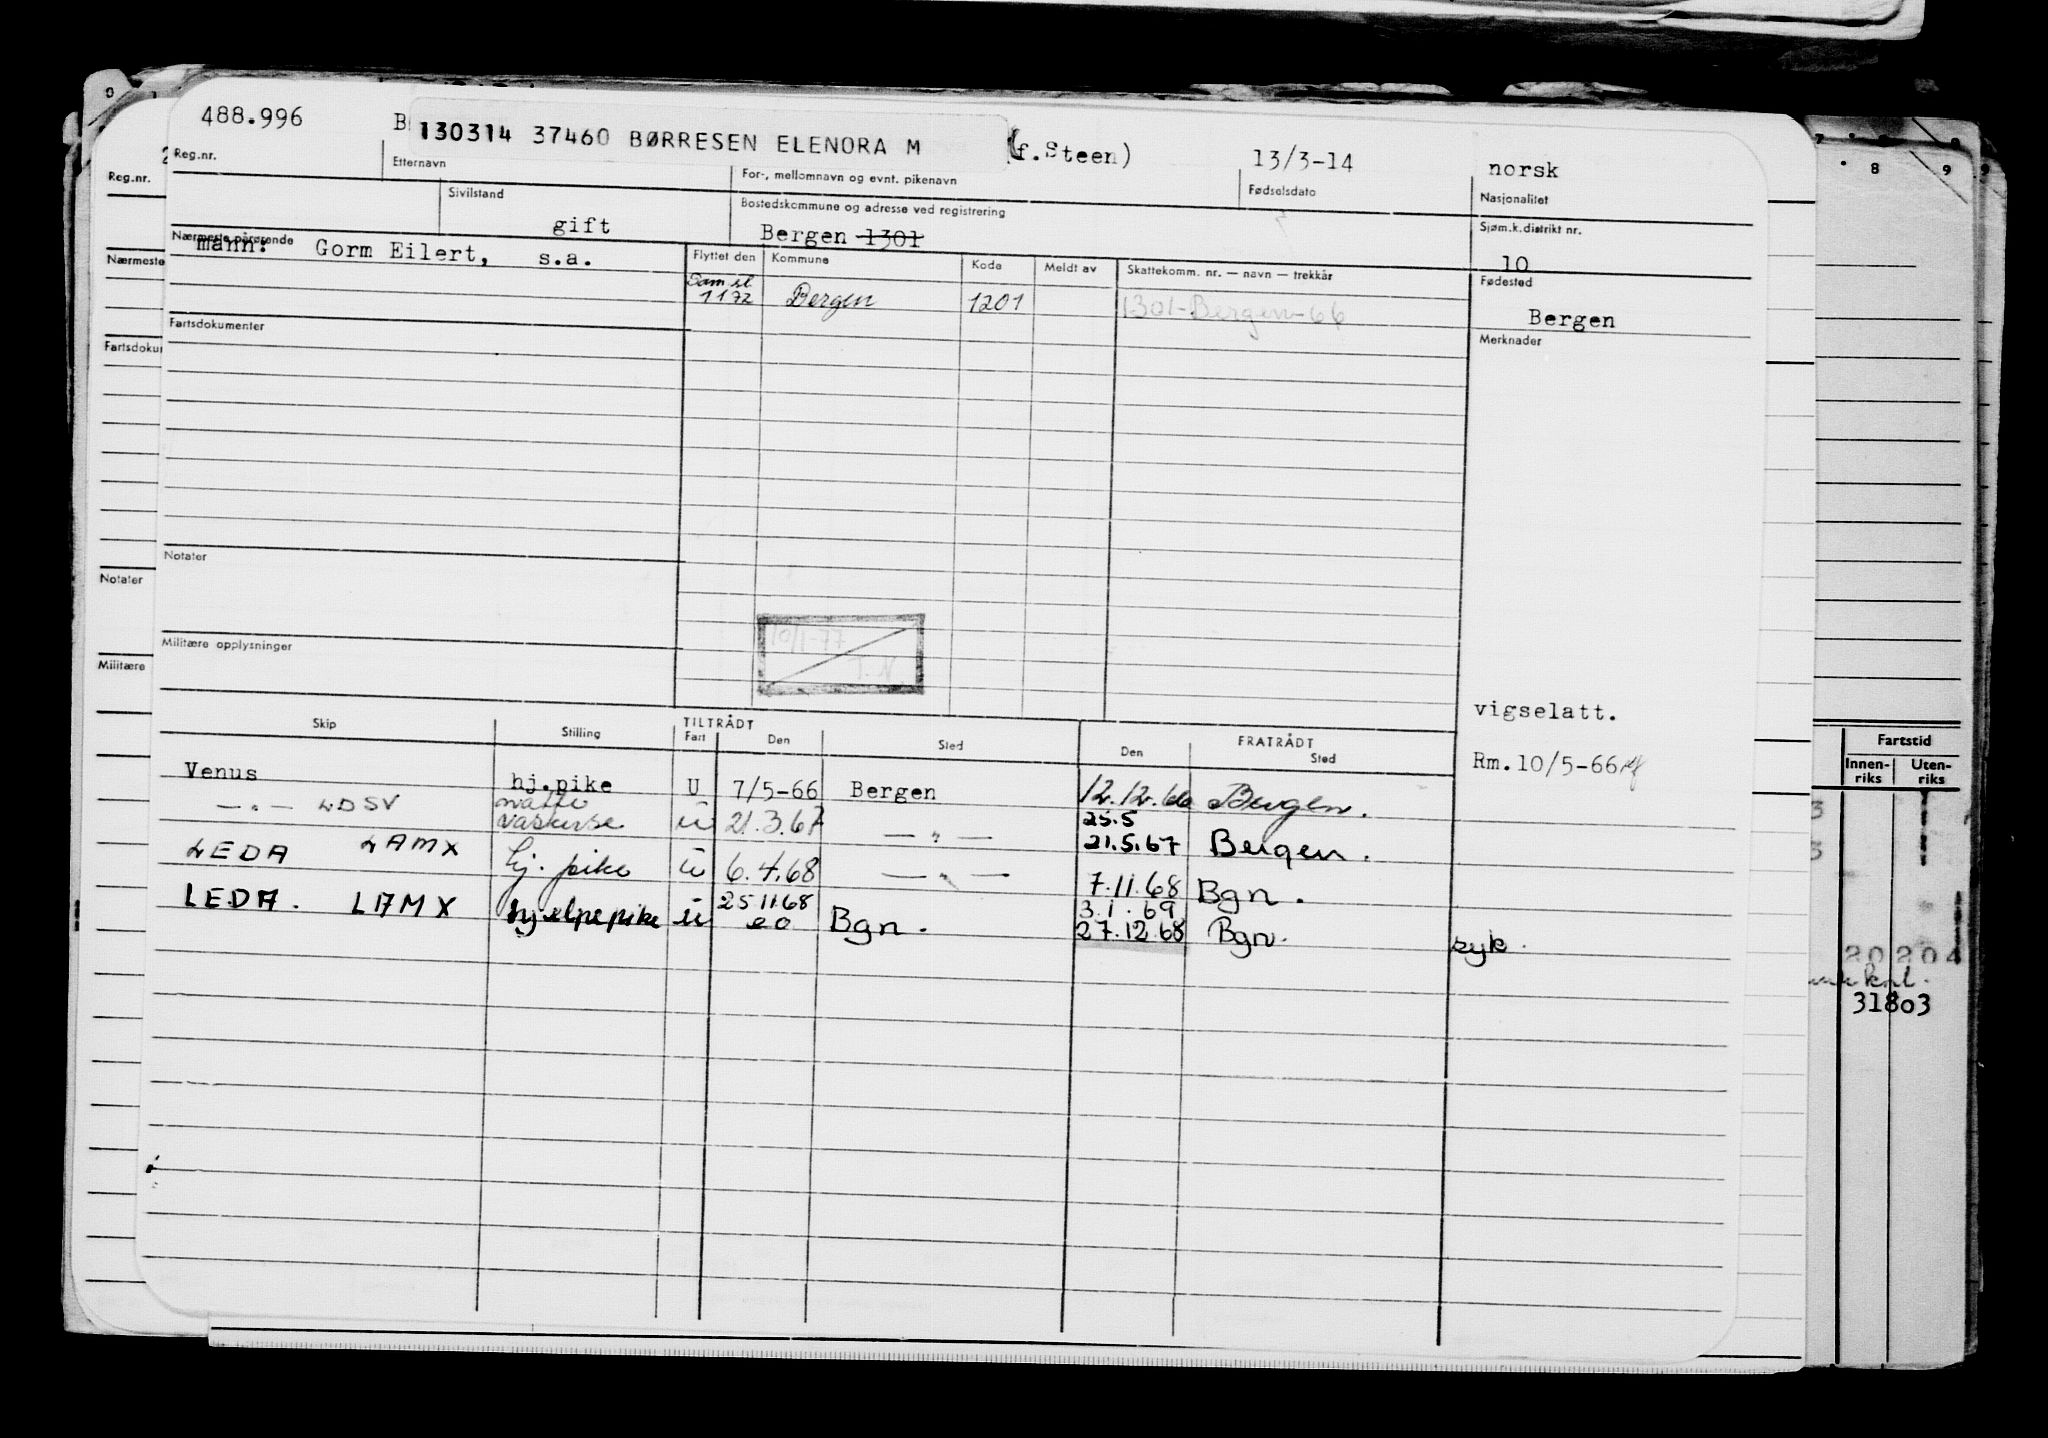 488.996 B 130314 37460 BØRRESEN ELENORA M (f.Steen) 13/3-14 norsk
Reg.nr. Etternavn For-, mellomnavn og evnt. pikenavn Fødselsdato Nasjonalitet
Reg.nr.
Sivilstand Bostedskommune og adresse ved registrering Sjøm.k.distrikt nr.
gift Bergen 1301 10
Nærmeste pårørende
mann: Gorm Eilert, s.a.
Nærmeste
Flyttet den Kommune Kode Meldt av Skattekomm. nr. — navn — trekkår Fødested
1172 Bergen 1201 1301-Bergen-66 Bergen
Fartsdokumenter Merknader
Fartsdokur
Notater
Notater
10/1-77
Militære opplysninger
Militære
vigselatt.
Skip Stilling TILTRÅDT FRATRÅDT
Fart Den Sted Den Sted
Rm.10/5-66
Fartstid
Innen-riks Uten-riks
Venus hj.pike U 7/5-66 Bergen 12.12.66 Bergen.
— " — LDSV natt
vaskerske u 21.3.67 — " — 25.5
21.5.67 Bergen.
LEDA LAMX hj. pike u 6.4.68 — " — 7.11.68 Bgn.
LEDA. LAMX hjelpepike u 25 11.68
20 Bgn. 3.1.69
27.12.68 Bgn. syk.
20 204
31803